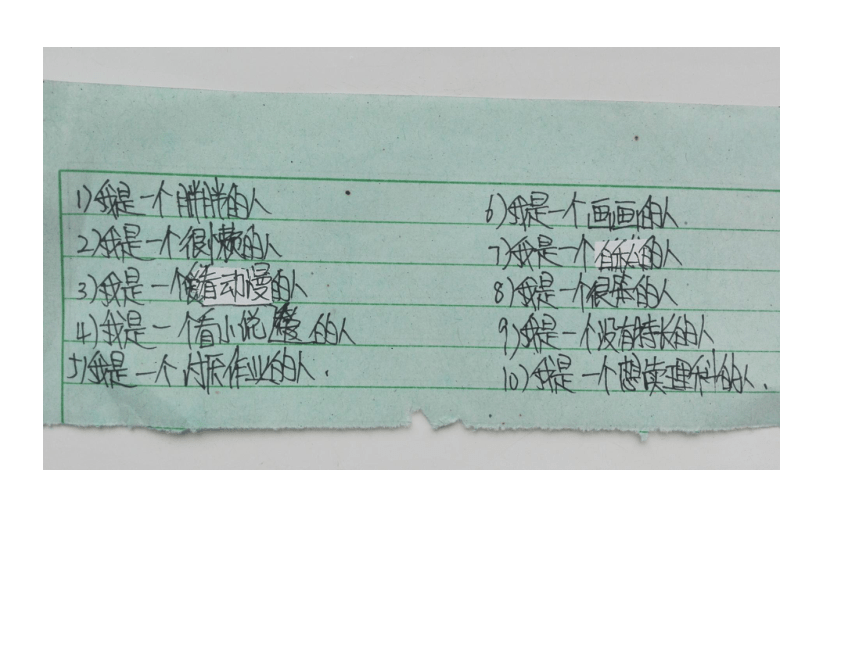 1)我是一个胖胖的人
2)我是一个很懒的人
3)我是一个爱看动漫的人
4)我是一个看小说 的人
5)我是一个 作业的人.
6)我是一个画画的人.
7)我是一个 的人
8)我是一个很笨的人
9)我是一个没有特长的人
10)我是一个想读理科的人.